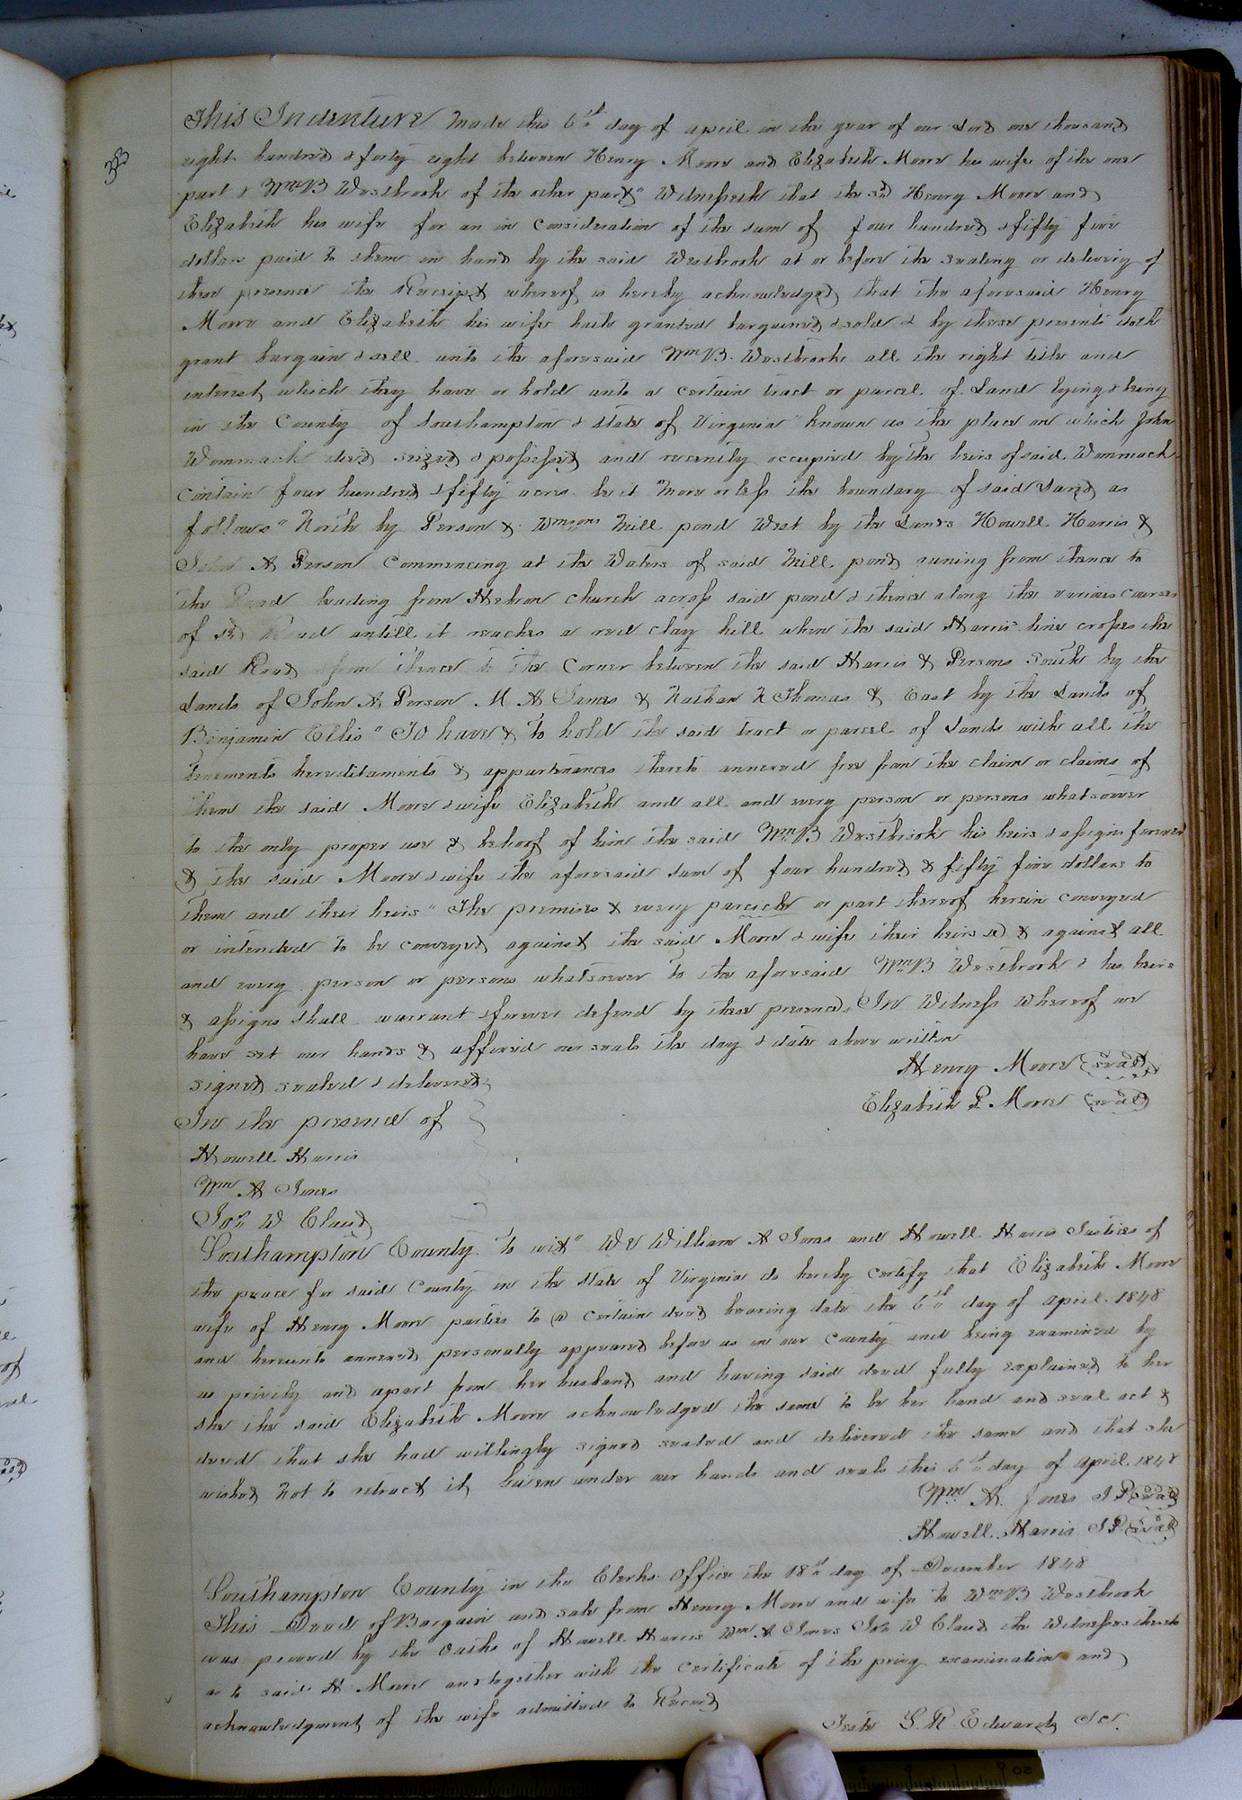 333
This Indenture Made this 6th day of april in the year of our Lord one thousand
eight hundred & forty eight between Henry Moore and Elizabeth Moore his wife of the one
part & Wm B Westbrook of the other part" Witnesseth that the sd Henry Moore and
Elizabeth his wife for an in Consideration of the sum of four hundred & fifty five
dollars paid to them in hand by the said Westbrook at or before the sealing or delivery of
these presence the Receipt whereof is hereby acknowledged that the aforesaid Henry
Moore and Elizabeth his wife hath granted bargained & sold & by these presents doth
grant bargain & sell unto the aforesaid Wm B. Westbrook all the right title and
interest which they have or hold unto a certain tract or parcel of Land lying & being
in the County of Southampton & state of Virginia" known as the place on which John
Wommack died seized & possessed and recently occupied by the heirs of said Wommack
Contain four hundred & fifty acres be it More or less the boundary of said Land as
follows" North by Person & Mill pond West by the Lands Howell Harris &
John A Person Commencing at the Waters of said Mill pond runing from thence to
the Road leading from Hebron Church across said pond & thence along the various courses
of sd Road untill it reaches a red clay hill when the said Harris line crosses the
said Road from thence to the Corner between the said Harris & Persons South by the
Lands of John A Person M A James & Nathan N Thomas & East by the Lands of
Benjamin Ellis" To have & to hold the said tract or parcel of Lands with all the
tenements hereditaments & appurtenances thereto annexed free from the claim or claims of
them the said Moore & wife Elizabeth and all and every person or persons whatsoever
to the only proper use & behoof of him the said Wm B Westbrook his heirs & assigns forever
& the said Moore & wife the aforesaid sum of four hundred & fifty five dollars to
them and their heirs" The premises & every parcicle or part thereof herein conveyed
or intended to be conveyed against the said Moore & wife their heirs & against all
and every person or persons whatsoever to the aforesaid Wm B Westbrook & his heirs
& assigns shall warrant & forever defend by these presence In Witness Whereof we
have set our hands & affixed our seals the day & date above written
Henry Moore (seal)
signed sealed & delivered
Elizabeth P. Moore (seal)
In the presence of
Howell Harris
Wm A Jones
Jos W Claud
Southampton County to wit" We William A Jones and Howell Harris Justices of
the peace for said County in the State of Virginia do hereby certify that Elizabeth Moore
wife of Henry Moore parties to a certain deed bearing date the 6th day of april 1848
and hereunto annexed personally appeared before us in our County and being examined by
us privily and apart from her husband and having said deed fully explained to her
she the said Elizabeth Moore acknowledged the same to be her hand and seal act &
deed that she had willingly signed sealed and delivered the same and that she
wished not to retract it Given under our hands and seals this 6th day of april 1848
Wm A. Jones J P (seal)
Howell Harris J P (seal)
Southampton County in the Clerks Office the 18th day of December 1848
This Deed of Bargain and sale from Henry Moore and wife to Wm B Westbrook
was proved by the Oaths of Howell Harris Wm A Jones Jos W Claud the Witnesses thereto
as to said H Moore and together with the Certificate of the privy examination and
acknowledgment of the wife admitted to Record
Teste L. R. Edwards